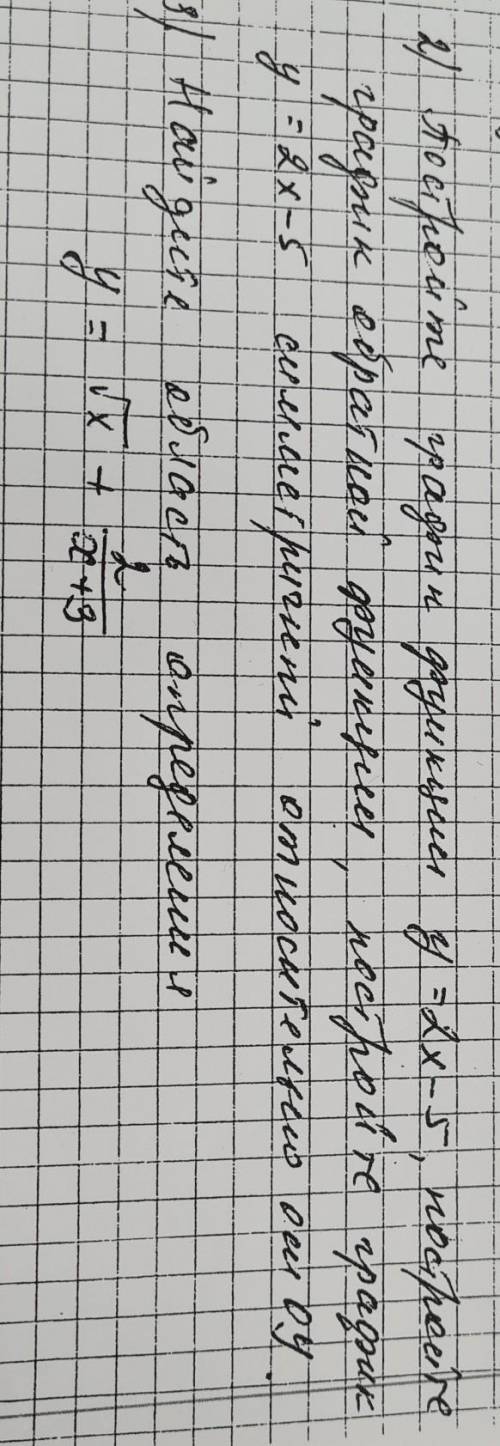 2) Постройте график функции y = 2x - 5, постройте
график обратной функции, постройте график
y = 2x - 5 симметричный относительно оси оу.
3) Найдите область определения
y = √x + 2/(x+3)